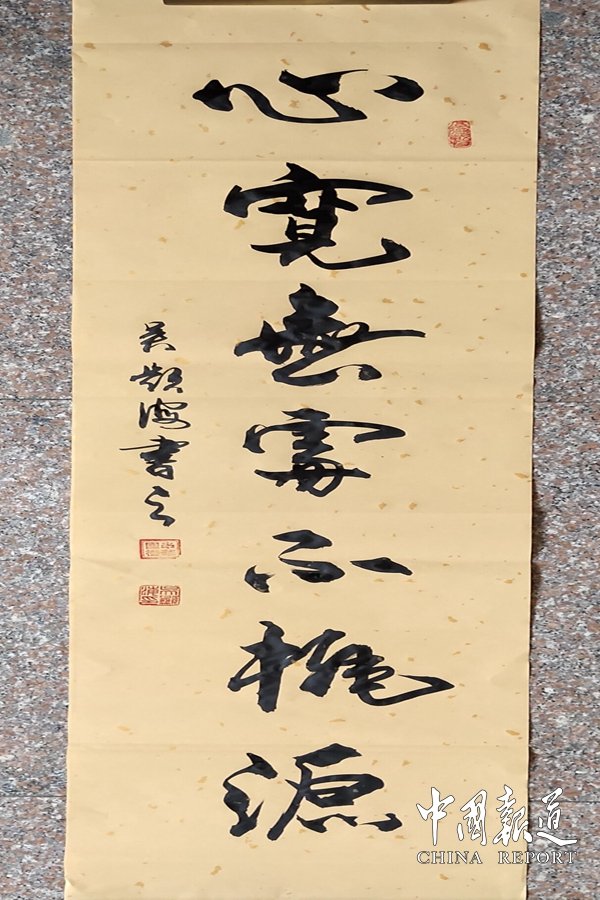 心寬無處不桃源
吴顯海書
中国報道
CHINA REPORT